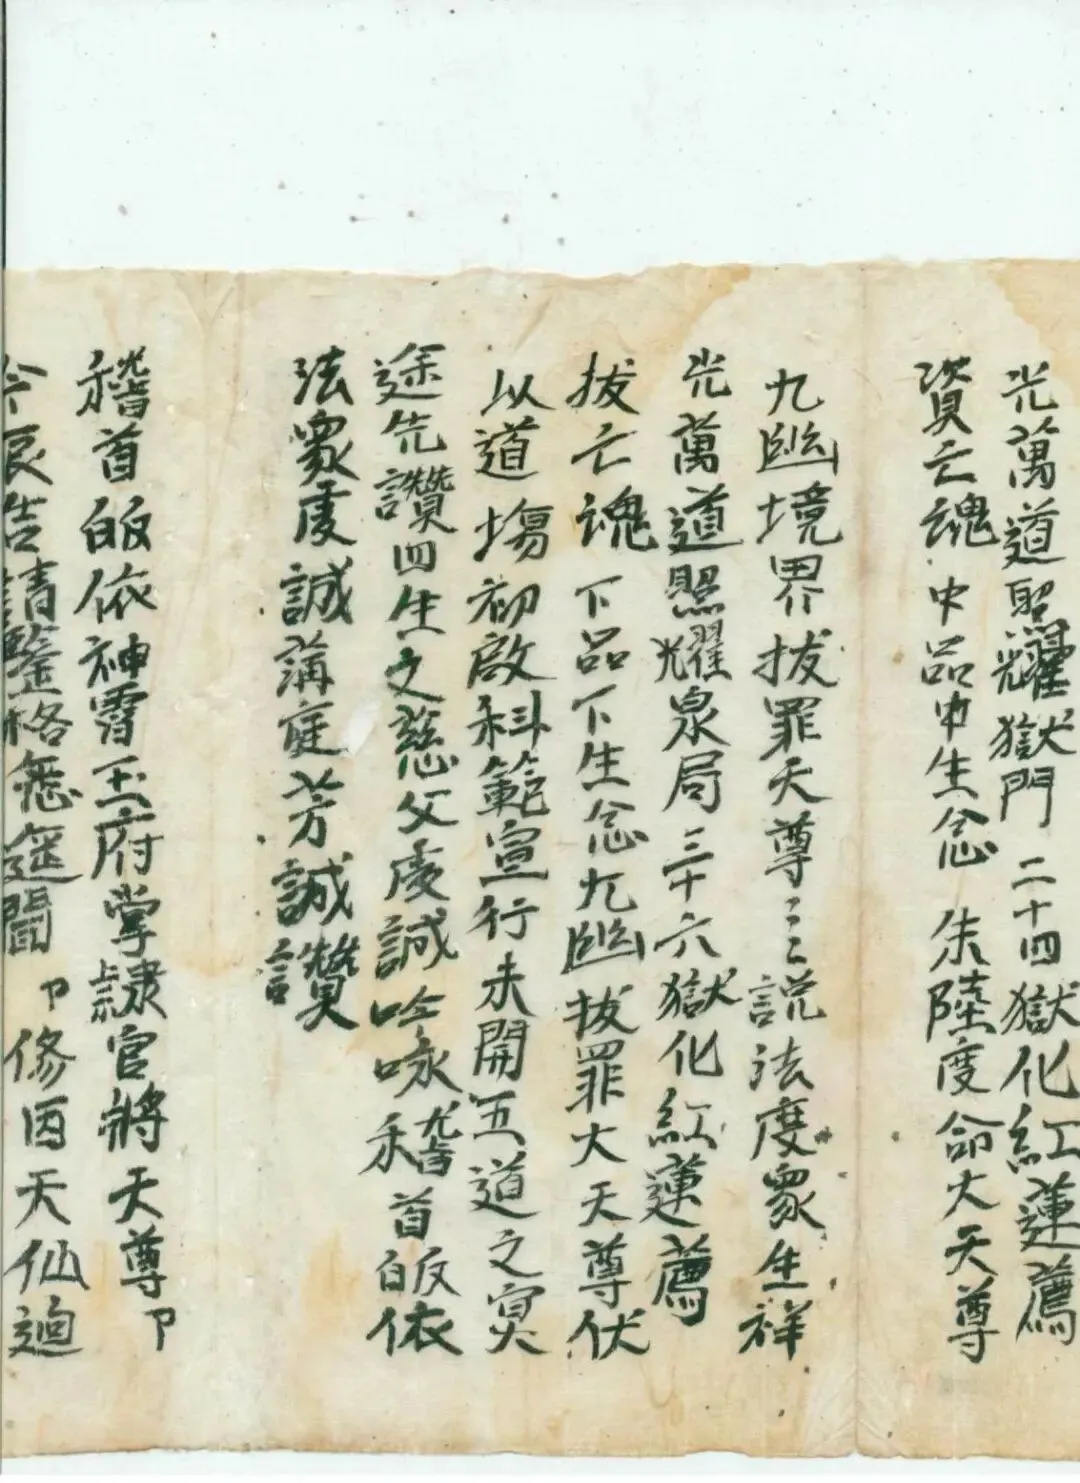 光萬道照耀獄門二十四獄化紅蓮薦
資亡魂中品中生念朱陸度命大天尊
九幽境界拔罪天尊〻〻説法度衆生祥
光萬道照耀泉局三十六獄化紅蓮薦
拔亡魂下品下生念九幽拔罪大天尊伏
以道塲初啟科範宣行未開五道之冥
途先讚四生之慈父虔誠吟咏稽首皈依
法衆虔誠講庭芳誠讚
稽首皈依神霄玉府掌隷官將天尊卩
今哀告請鑒格悉遥聞卩修因天仙